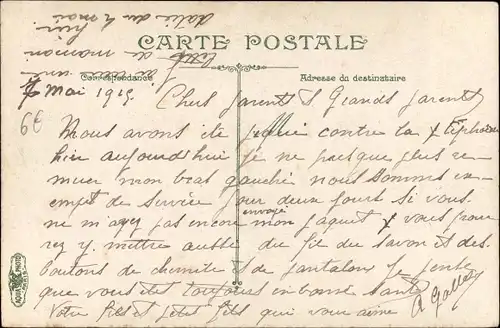 j'ai reçu une
lettre de maman
hier
datée du 4 mai
CARTE POSTALE
Correspondance
Adresse du destinataire
7 Mai 1915. Chers parents & Grands parents
Nous avons été piqué contre la typhoïde
hier aujourd'hui je ne presque plus re-
muer mon bras gauche nous sommes ex-
empt de service pour deux jours si vous
ne m'ayez pas encore envoyé mon paquet vous pour
rez y mettre aussi du fil du savon et des
boutons de chemise & de pantalons je pense
que vous êtet toujours en bonne santé
Votre fils et petit fils qui vous aime A Galle